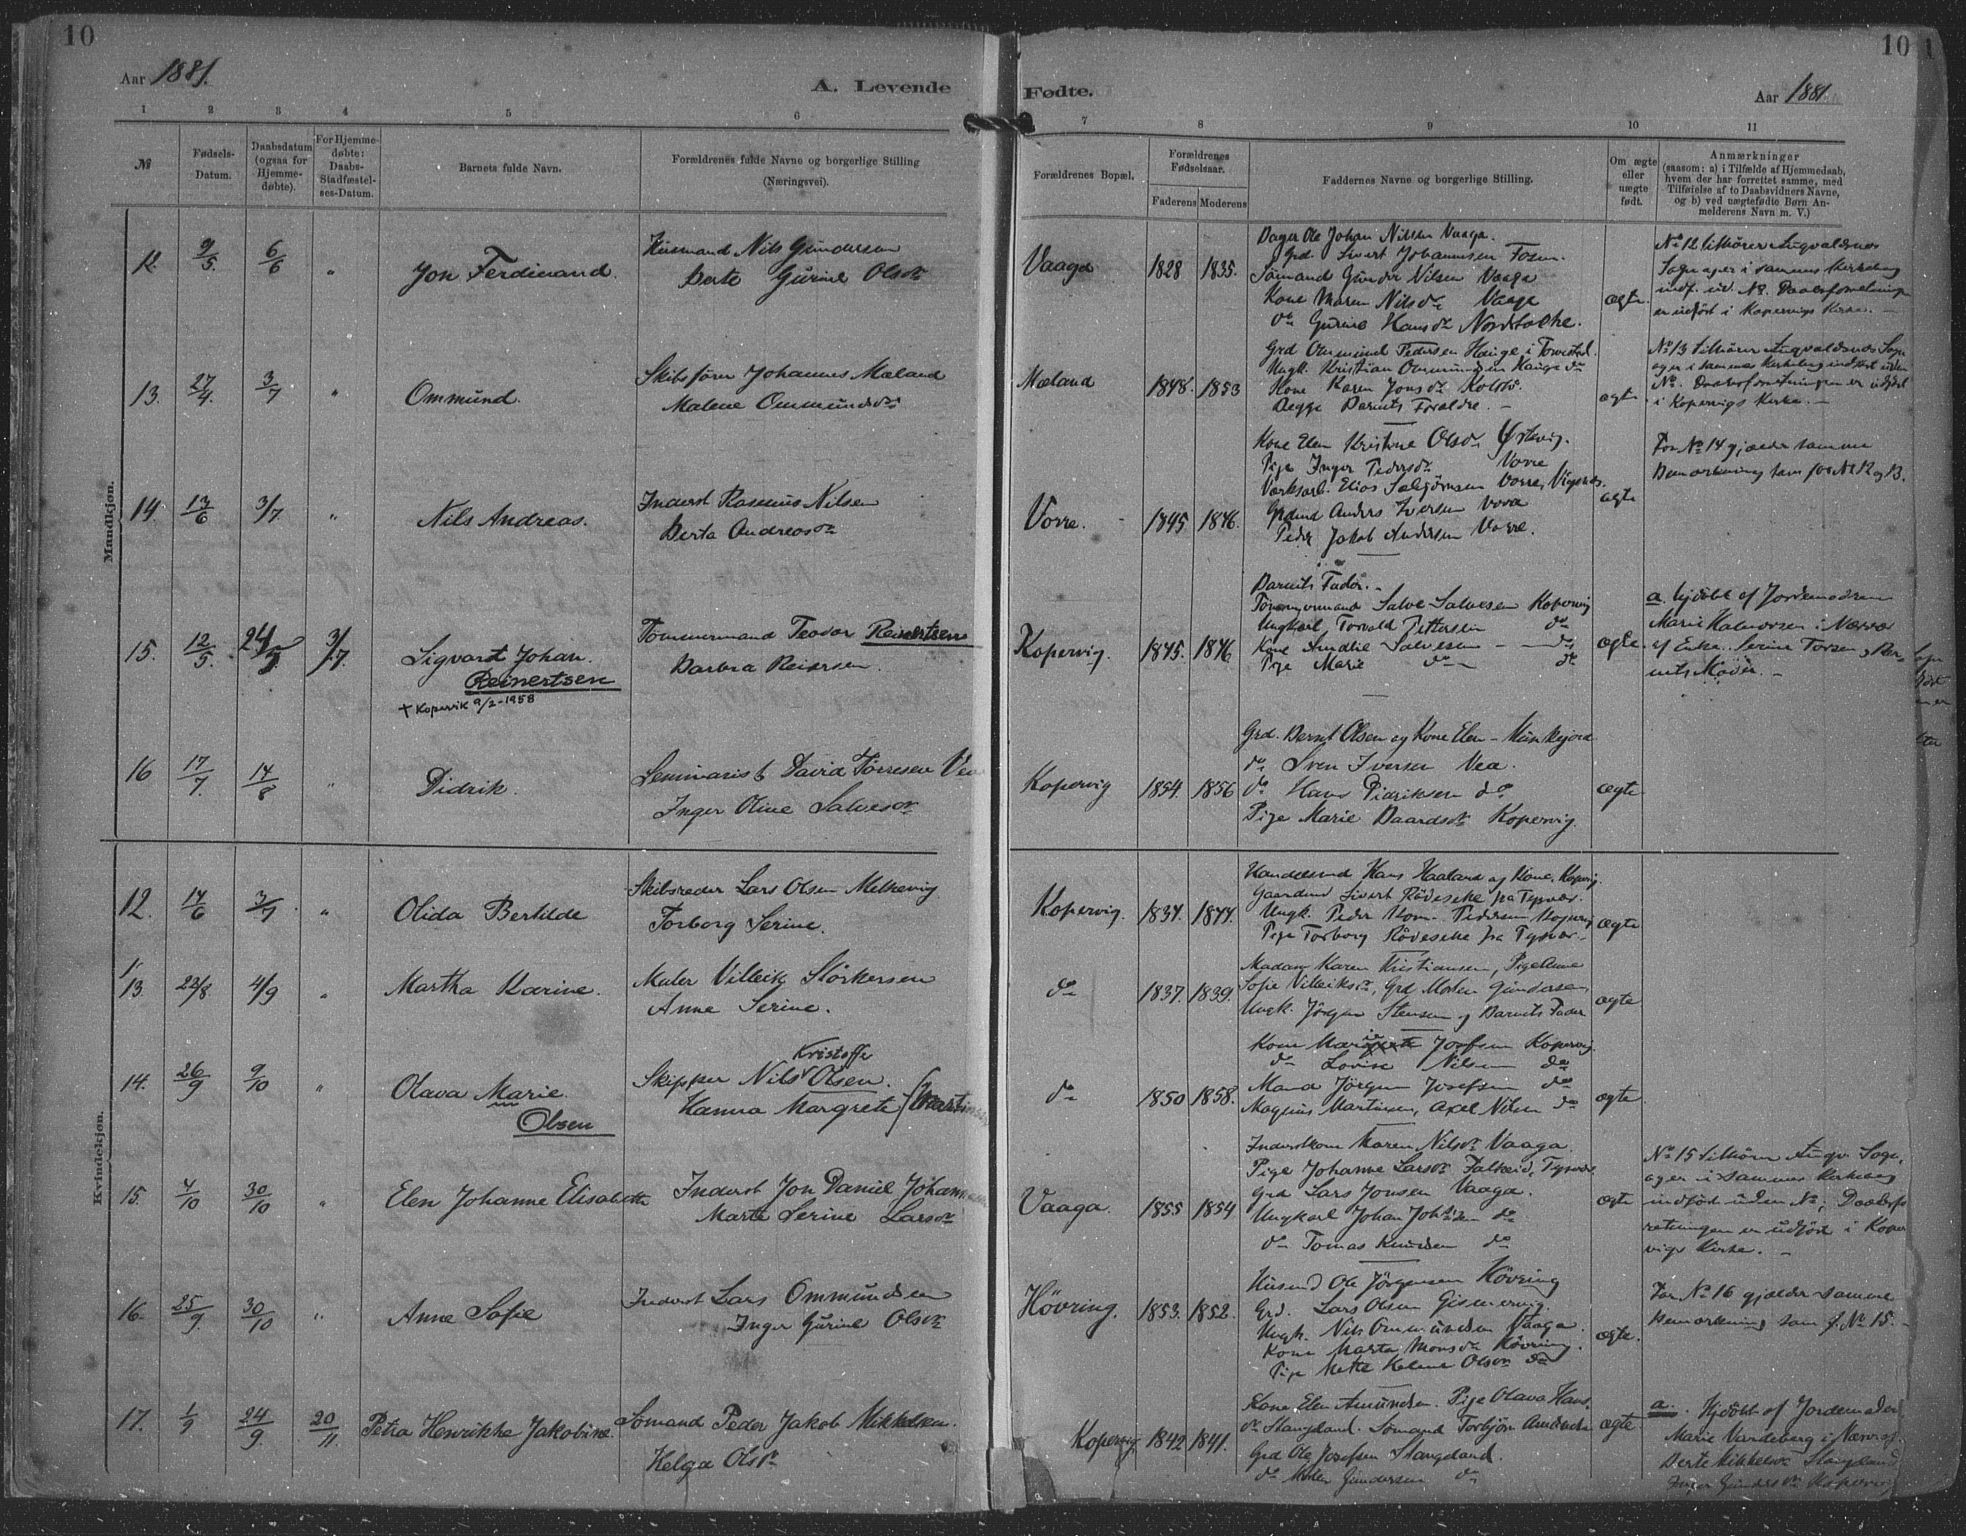 10
Aar 1881.
A. Levende
1 2 3 4 5 6
№
Fødsels-
Datum.
Daabsdatum
(ogsaa for
Hjemme-
døbte).
For Hjemme-
døbte:
Daabs-
Stadfæstel-
ses-Datum.
Barnets fulde Navn.
Forældrenes fulde Navne og borgerlige Stilling
(Næringsvei).
Mandkjøn.
12. 9/5 6/6 " Jon Ferdinand.
Husmand Nils Gundersen
Berte Gurine Olsdr
13. 27/4 3/7 " Ommund.
Skibsfører Johannes Mæland
Malene Ommundsdr
14. 13/6 3/7 " Nils Andreas.
Inderst Rasmus Nilsen
Berta Andreasdr
15. 12/5 24/5 3/7 Sigvart Johan.
Reinertsen
+ Kopervik 9/2-1958
Tømmermand Teodor Reinertsen
Barbra Reiersen.
16 17/7. 14/8 " Didrik.
Seminarist David Tørresen
Inger Oline Salvesdr
Kvindekjøn.
12. 14/6 3/7 " Olida Bertilde
Skibsreder Lars Olsen Melkevig
Torborg Serine.
13. 22/8 4/9 " Martha Karine.
Maler Villeik Størkersen
Anne Serine.
14. 26/9 9/10 " Olava Marie.
Olsen
Kristoffer
Skipper Nils Olsen.
Hanna Margrete
15. 4/10 30/10 " Elen Johanne Elisabeth
Inderst Jon Daniel
Marta Serine Larsdr
16. 25/9. 30/10 " Anne Sofie
Inderst Lars Ommundsen
Inger Gurine Olsdr
17. 1/9 24/9. 20/11 Petra Henrikke Jakobine
Sømand Peder Jakob Mikkelsen.
Helga Olsdr
10
Fødte.
Aar 1881.
7 8 9 10 11
Forældrenes Bopæl.
Forældrenes
Fødselsaar.
Faderens Moderens
Faddernes Navne og borgerlige Stilling.
Om ægte
eller
uægte
født.
Anmærkninger
(saasom: a) i Tilfælde af Hjemmedaab,
hvem der har forrettet samme, med
Tilføielse af to Daabsvidners Navne,
og b) ved uægtefødte Børn An-
melderens Navn m. V.)
Vaaga 1828 1835.
Ole Johan Nilsen Vaaga.
Grd. Sivert Johannesen Fosen.
Sømand Gunder Nilsen Vaaga
Kone Maren Nilsdr Vaaga
do Gurine Hansdr
ægte.
No 12 tilhører Augvaldsnæs
Sogn og er i samme Kirkebog
indf. ud. No. Daabsforretningen
er udført i Kopervigs Kirke. —
Mæland 1848. 1853
Grd Ommund Pedersen Hauge i Torvestad.
Ungk. Kristian Ommundsen Hauge do
Kone Karen Jonsdr
Begge Barnets Forældre. —
ægte.
No 13 tilhører Augvaldsnæs Sogn
og er i samme Kirkebog indført uden
No. Daabsforretningen er udført
i Kopervigs Kirke. —
Vorre. 1845 1846.
Kone Elen Kristine Olsdr
Pige Inger Pedersdr Vorre
Værksarb. Elias Vorre, Vigsnæs.
Anders Iversen Vorre
Peder Jakob Andersen Vorre.
ægte
For No 14 gjælder samme
Bemærkning som for No 12 og 13.
Kopervig. 1845. 1846
Barnets Fader. —
Tømmermand Salve Salvesen Kopervig
Ungkarl Torvald Pettersen do
Kone Amalie Salvesen — do
Pige Marie do — do
ægte.
a. hjdøbt af Jordemoderen
Marie Halvorsen i Nærvær
af Enke Serine Torsen og Bar-
nets Moder. —
Kopervig 1854. 1856
Grd. Bernt Olsen og Kone Elen — Munkejord
do Sven Iversen Vea.
do Hans Didriksen do
Pige Marie Baardsdr Kopervig.
ægte
Kopervig. 1837. 1844.
Hans Haaland og Kone, Kopervig.
Gaardmd Sivert Rødeseke fra Tysvær.
Ungk. Peder Pedersen Kopervig
Pige Torborg Rødeseke fra Tysvær.
ægte
do 1837. 1839.
Madam Karen Kristiansen, Pige Anne
Sofie Villeiksdr, Grd Morten Gundersen,
Ungk. Jørgen Stensen og Barnets Fader
ægte
do 1850 1858.
Kone Josefsen Kopervig.
do Lovise Nilsen do
Mand Jørgen Josefsen do
Magnus Martinsen, Axel Nilsen do
ægte
Vaaga. 1855 1854
Inderstkone Maren Nilsdr Vaaga
Pige Johanne Larsdr Falkeid, Tysvær
Grd Lars Jonsen Vaaga.
Ungkarl Johan do
do Tomas Knudsen do
ægte
No 15 tilhører Augv. Sogn,
og er i sammes Kirkebog
indført uden No; Daabsfor-
retningen er udført i Koper-
vigs Kirke. —
Høvring. 1853. 1852.
Husmd Ole Jørgensen Høvring
Grd. Lars Olsen Gismervig.
Ungk. Nils Ommundsen Vaaga.
Kone Marta Monsdr Høvring.
Pige Mette Helene Olsdr do
ægte.
For No 16 gjælder samme
Bemærkning som f. No 15. —
Kopervig 1842 1841.
Kone Elen Amundsen. Pige Olava Hans.
do Stangeland. Sømand Torbjørn Amundsen
Grd Ole Josefsen Stangeland.
do Morten Gundersen do
ægte
a. Hjdøbt af Jordemoder
Marie Vandeberg i Nærv. af
Berte Mikkelsdr Stangeland
Inger Gundersdr Kopervig